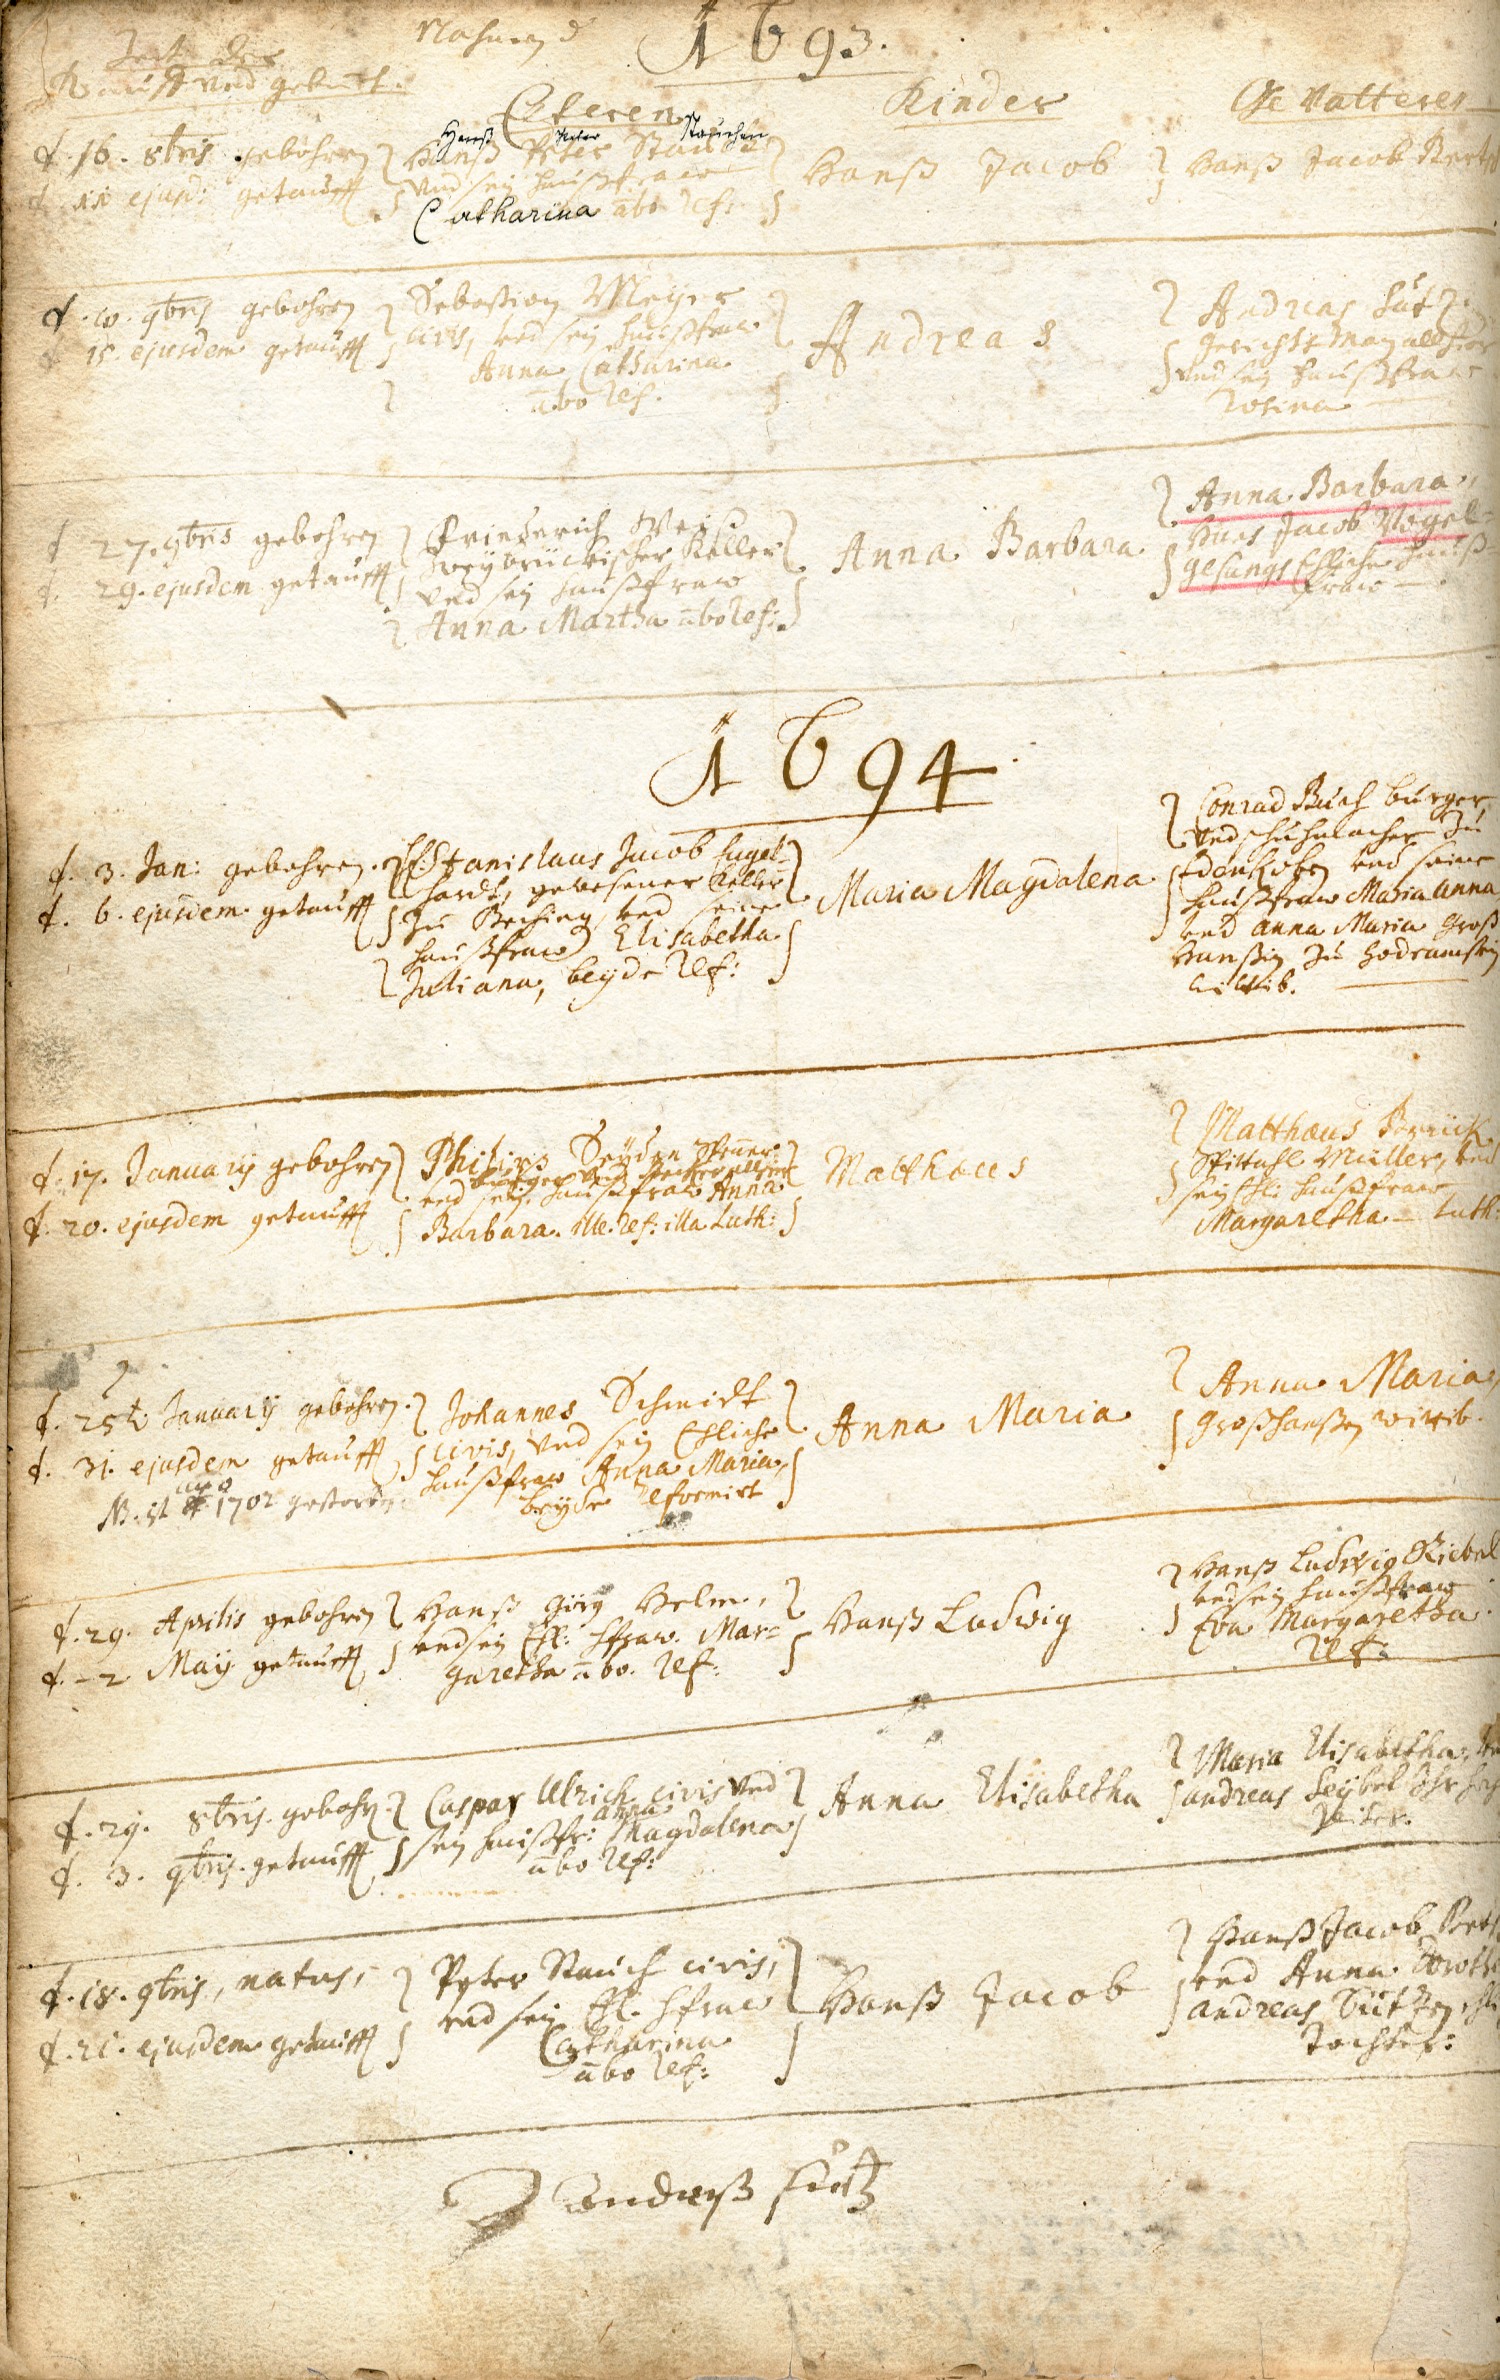 Zeit der
Tauff und geburt.
Nahmen d
1693.
Elteren
Kinder
Gevatteren
Hanß Peter Stauchen
d. 16. 8bris gebohren
d. 11 ejusd: getaufft
Hanß Peter Stauch
und sein haußfraw
Catharina abo. ref:
Hanß Jacob
Hanß Jacob
d. 10. 9bris gebohren
d. 15. ejusdem getaufft
Sebastian Meyer
civis, und sein haußfraw
Anna Catharina
abo ref.
Andreas
Andreas Lutz
und sein haußfraw
Rosina
d 27. 9bris gebohren
d. 29. ejusdem getaufft
Friederich Weiß
Zweybrückischer Keller
und sein haußfraw
Anna Martha abo ref:
Anna Barbara
Anna Barbara,
Hans Jacob Vogel-
gesangs Ehliche hauß-
fraw
1694
d. 3. Jan: gebohren.
d. 6. ejusdem getaufft
H. Stanislaus Jacob Engel-
hardt, gewesener Keller
zu, und seine
haußfraw Elisabetha
Juliana, beyde ref:
Maria Magdalena
Conrad Buch burger
und schuhmacher zu
Edenkoben und seine
haußfraw Maria Anna
und Anna Maria Groß
Hanßin zu Godramstein
wittib.
d. 17. January gebohren
d. 20. ejusdem getaufft
Philips
burger und
und sein haußfraw Anna
Barbara. ille. ref: illa Luth:
Matthaeus
Matthaeus
Spittahl Müller, und
sein Ehl: haußfraw
Margaretha - Luth:
d. 25t January gebohren.
d. 31. ejusdem getaufft
NB. ist ao 1702 gestorben
Johannes Schmidt
civis, und sein Ehliche
haußfraw Anna Maria,
beyde reformirt
Anna Maria
Anna Maria,
Großhanßen wittib.
d. 29. Aprilis gebohren
d. - 2 May getaufft
Hanß Görg Helm,
und sein Ehl: hfraw. Mar=
garetha abo. ref:
Hanß Ludwig
Hanß Ludwig
und sein haußfraw
Eva Margaretha.
ref:
d. 29. 8bris. gebohren
d. 3. 9bris. getaufft
Caspar Ulrich civis und
sein haußfr: Anna Magdalena
abo ref:
Anna Elisabetha
Maria Elisabetha,
Andreas
d. 18. 9bris, natus,
d. 21. ejusdem getaufft
Peter Stauch civis,
und sein Ehl. hfraw
Catharina
abo ref:
Hanß Jacob
Hanß Jacob
und Anna
Andreas Lutzen
Tochter:
Anderß Lutz